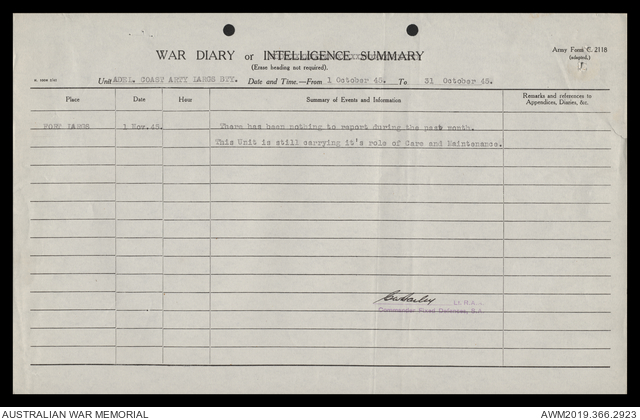 Army Form C. 2118
(adapted.)
WAR DIARY or INTELLIGENCE SUMMARY
(Erase heading not required).
Unit ADEL. COAST ARTY LARGS BTY. Date and Time.—From 1 October 45. To 31 October 45.
Place Date Hour Summary of Events and Information Remarks and references to Appendices, Diaries, &c.
FORT LARGS 1 Nov. 45. There has been nothing to report during the past month.
This Unit is still carrying it's role of Care and Maintenance.
Lt. R.A.A.
Commander Fixed Defences, S.A.
AUSTRALIAN WAR MEMORIAL AWM2019.366.2923